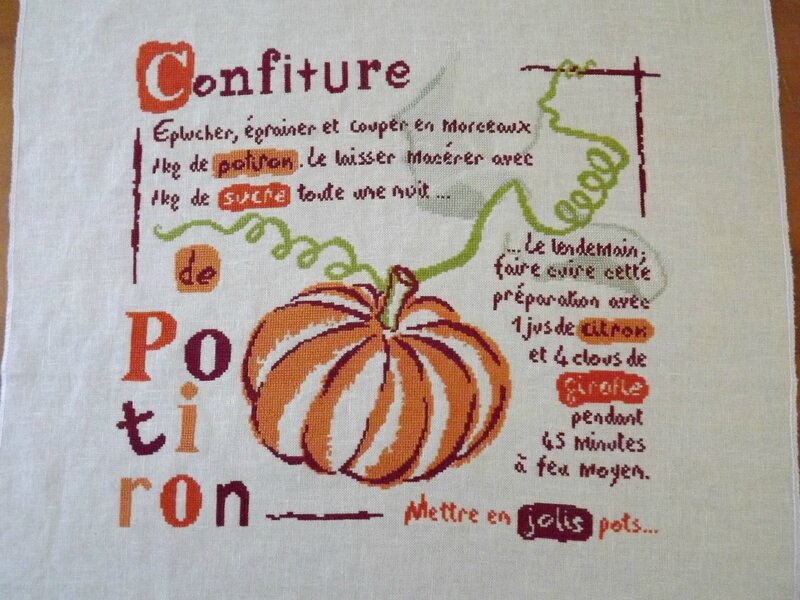 Confiture
Eplucher, égrainer et couper en morceaux
1kg de potiron. Le laisser macérer avec
1kg de sucre toute une nuit...
de
Po
ti
ron
... Le lendemain,
faire cuire cette
préparation avec
1 jus de citron
et 4 clous de
girofle
pendant
45 minutes
à feu moyen.
Mettre en jolis pots...